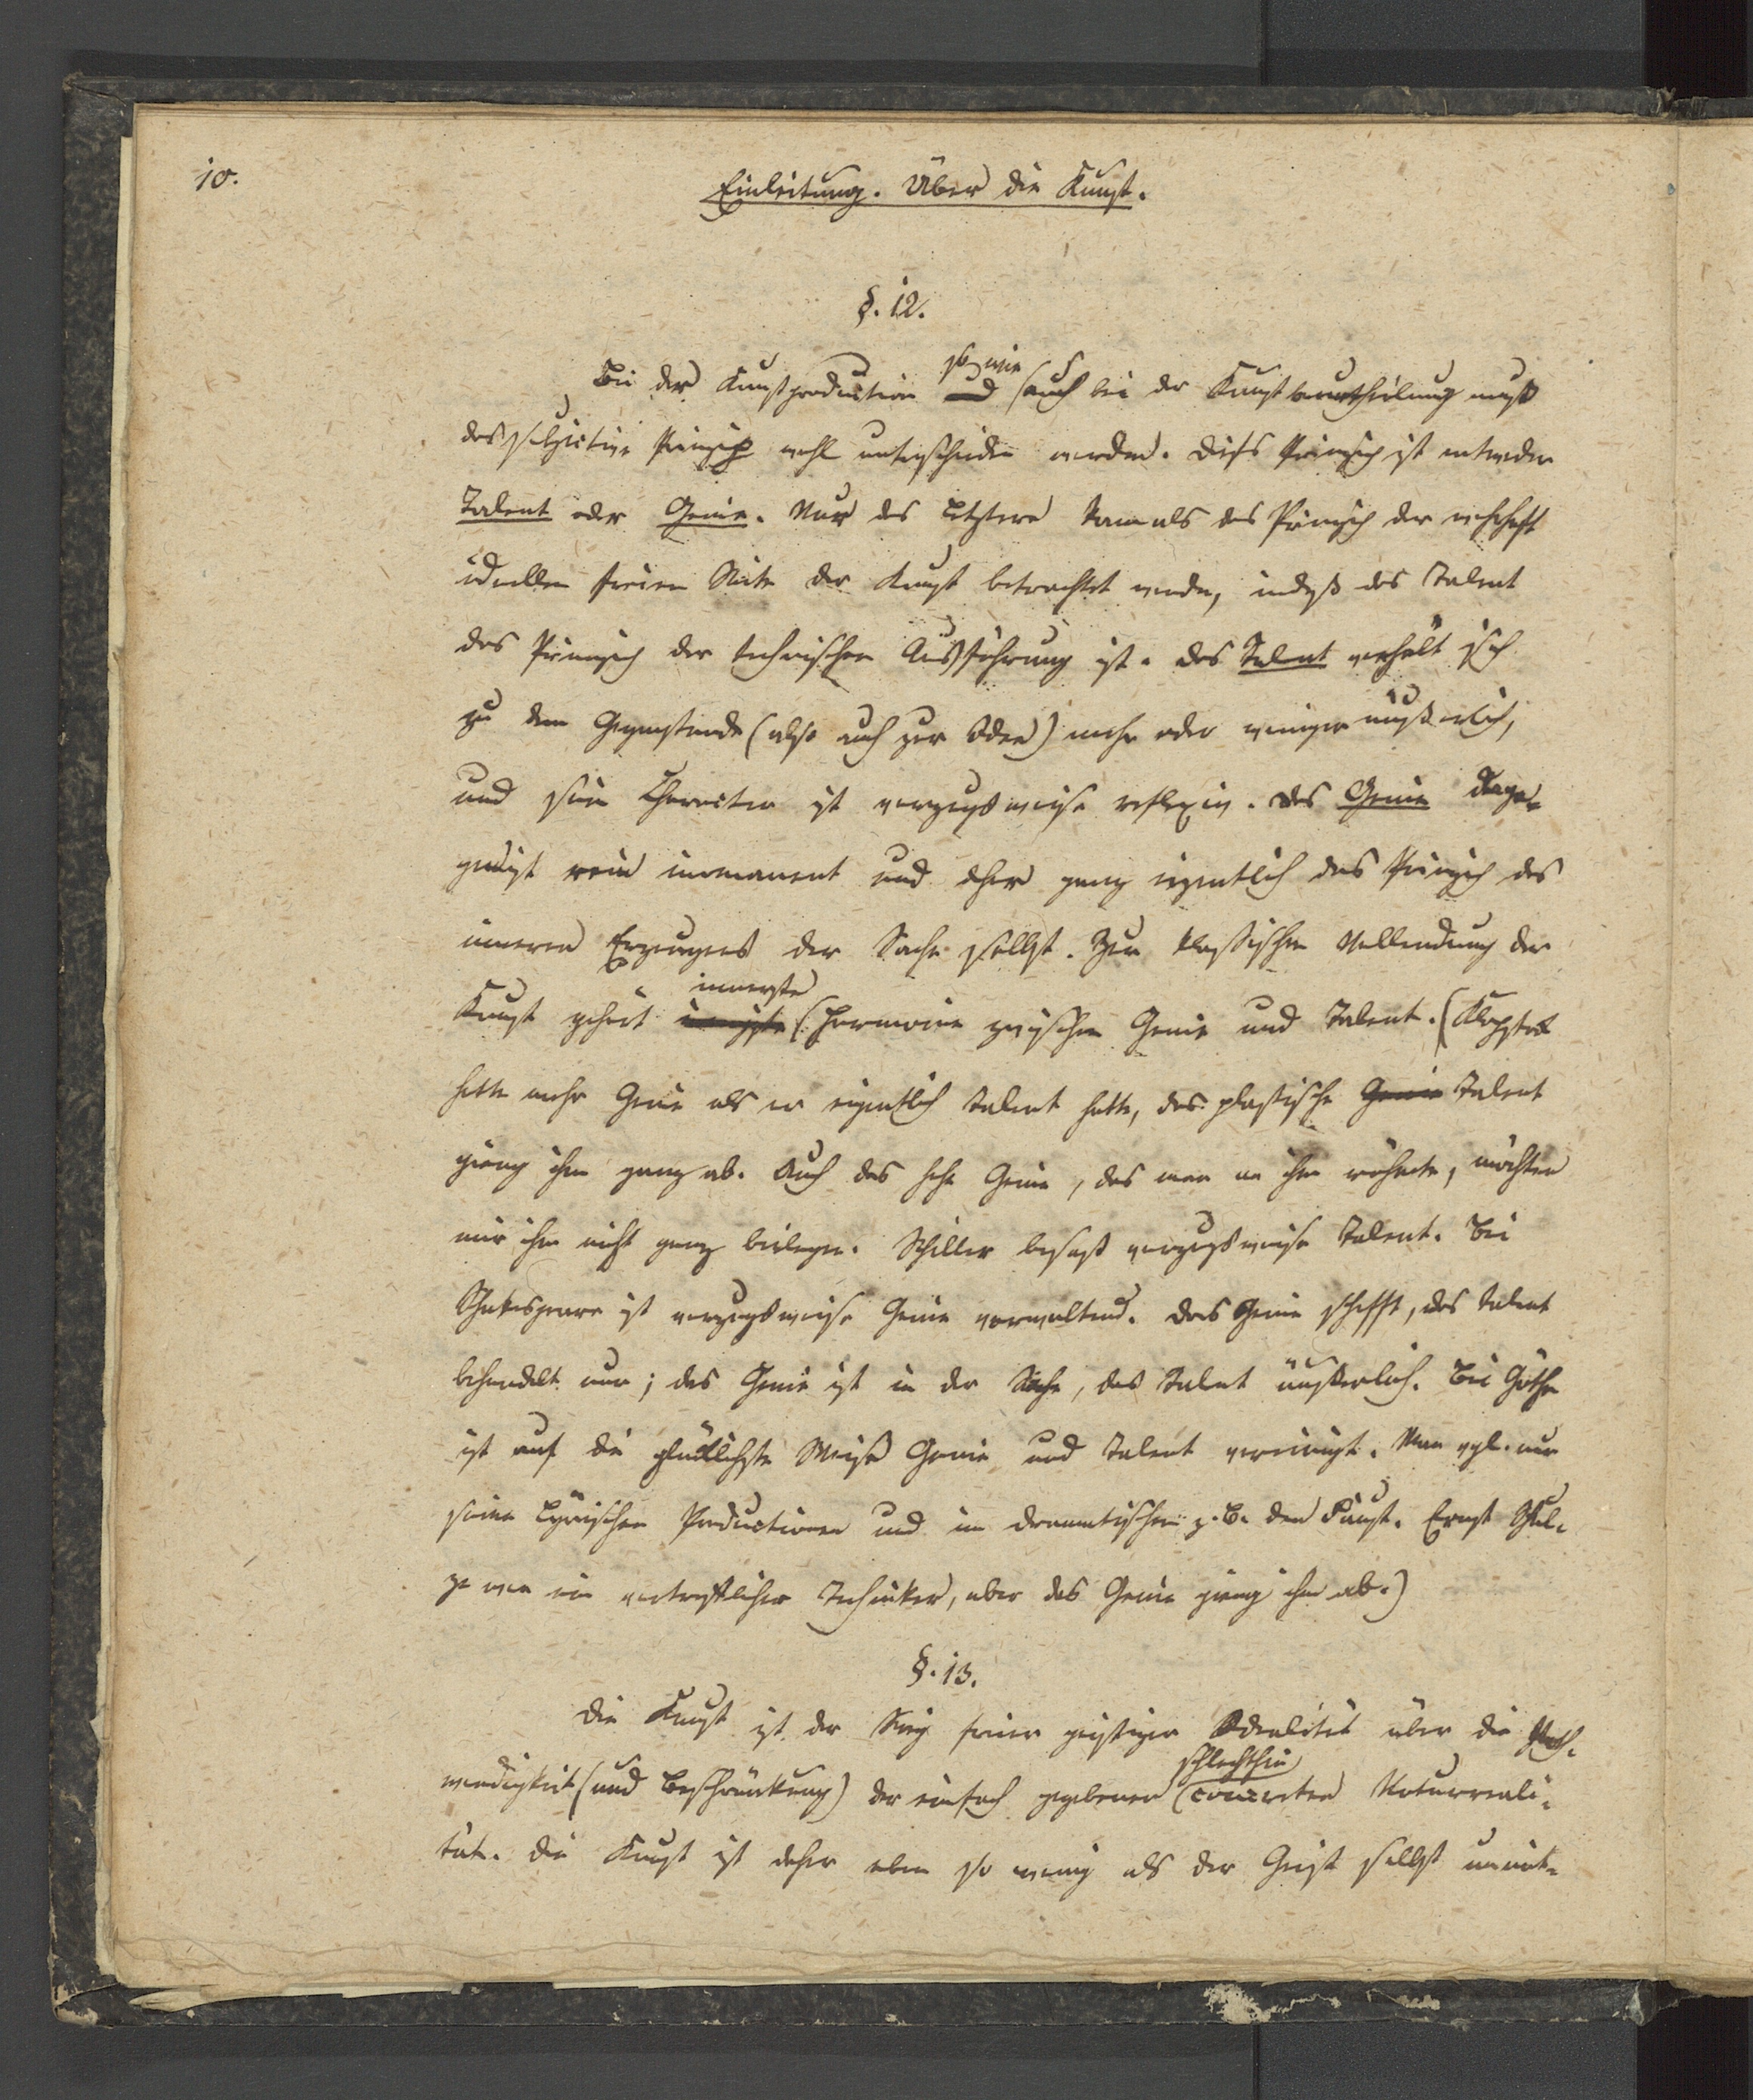 10.
Einleitung. Über die Kunst.
§. 12.
so wie
Bei der Kunstproduction und auch bei der Kunstbeurtheilung muß
das subjective Princip wohl unterschieden werden. Dieß Princip ist entweder
Talent oder Genie. Nur das Letztere kann als das Princip der wahrhaft
ideellen freien Seite der Kunst betrachtet werden, indeß das Talent
das Princip der technischen Ausführung ist. Das Talent verhält sich
zu dem Gegenstande (also auch zur Idee) mehr oder weniger äußerlich,
und sein Charakter ist vorzugsweise reflexiv. Das Genie dagegen
zeugt rein immanent und daher ganz eigentlich das Princip des
inneren Erzeugens der Sache selbst. Zur klassischen Vollendung der
innerste
Kunst gehört Harmonie zwischen Genie und Talent. (Klopstok
hatte mehr Genie als er eigentlich Talent hatte, das plastische Genie Talent
gieng ihm ganz ab. Auch das hohe Genie, das man an ihm rühmte, möchten
wir ihm nicht ganz beilegen. Schiller besaß vorzugsweise Talent. Bei
Shakespeare ist vorzugsweise Genie vorwaltend. Das Genie schafft, das Talent
behandelt nur; das Genie ist in der Sache, das Talent äußerlich. Bei Göthe
ist auf die glücklichste Weise Genie und Talent vereinigt. Man vgl. nur
seine Lyrischen Productionen und im dramatischen z. B. den Faust. Ernst Schul-
ze war ein vortrefflicher Techniker, aber das Genie gieng ihm ab.)
§. 13.
Die Kunst ist der Sieg freier geistiger Idealität über die Noth-
schlechthin
wendigkeit (und Beschränkung) der einfach gegebenen concreten Naturreali-
tät. Die Kunst ist daher eben so wenig als der Geist selbst unmit-